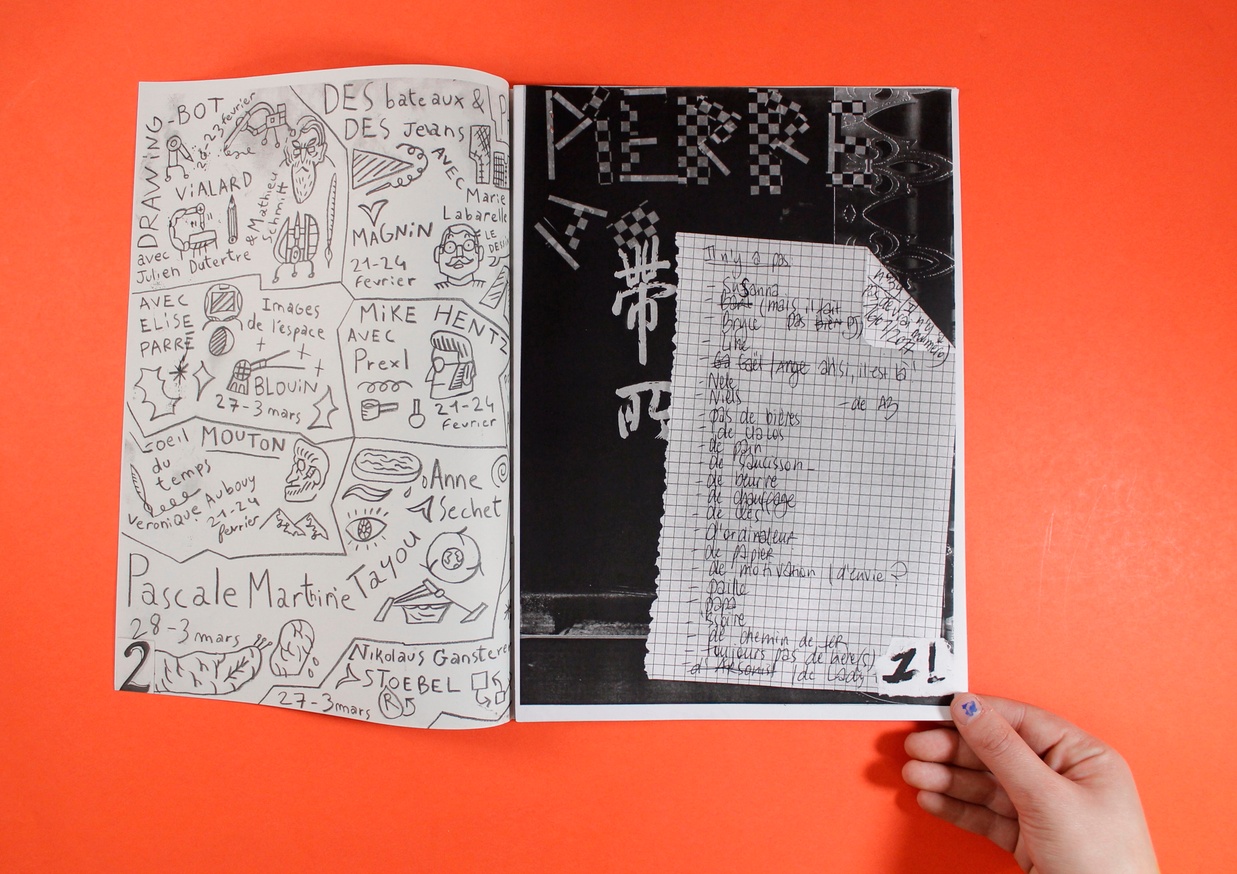 DRAWING-BOT
20-23 février
VIALARD
& Mathieu
Schmitt
avec
Julien Dutertre
DES bateaux &
DES Jeans
AVEC
Marie
Labarelle
MAGNIN
LE
21-24
février
AVEC
ELISE
PARRE
Images
de l'espace
BLOUIN
27-3 mars
MIKE HENTZ
AVEC
Prexl
21-24
février
L'oeil
du
temps
MOUTON
Veronique Aubouy
21-24
février
Anne
Sechet
Pascale Marthine Tayou
28-3 mars
Nikolaus Gansterer
STOEBEL
27-3 mars R5
2
MERRE
A
帶
Il n'y a pas
- Susanna
(mais, il fait
- Bruce pas
- Line
Gaël Ange ahsi, il est là
- Nele
- Niels
- de A3
- pas de bières
- de pain
- de saucisson
- de beurre
- de chauffage
- de clés
- d'ordinateur
- de papier
- de motivation (d'envie ?
- paille
- papa
- de chemin de fer
- toujours pas de bière(s)
1!